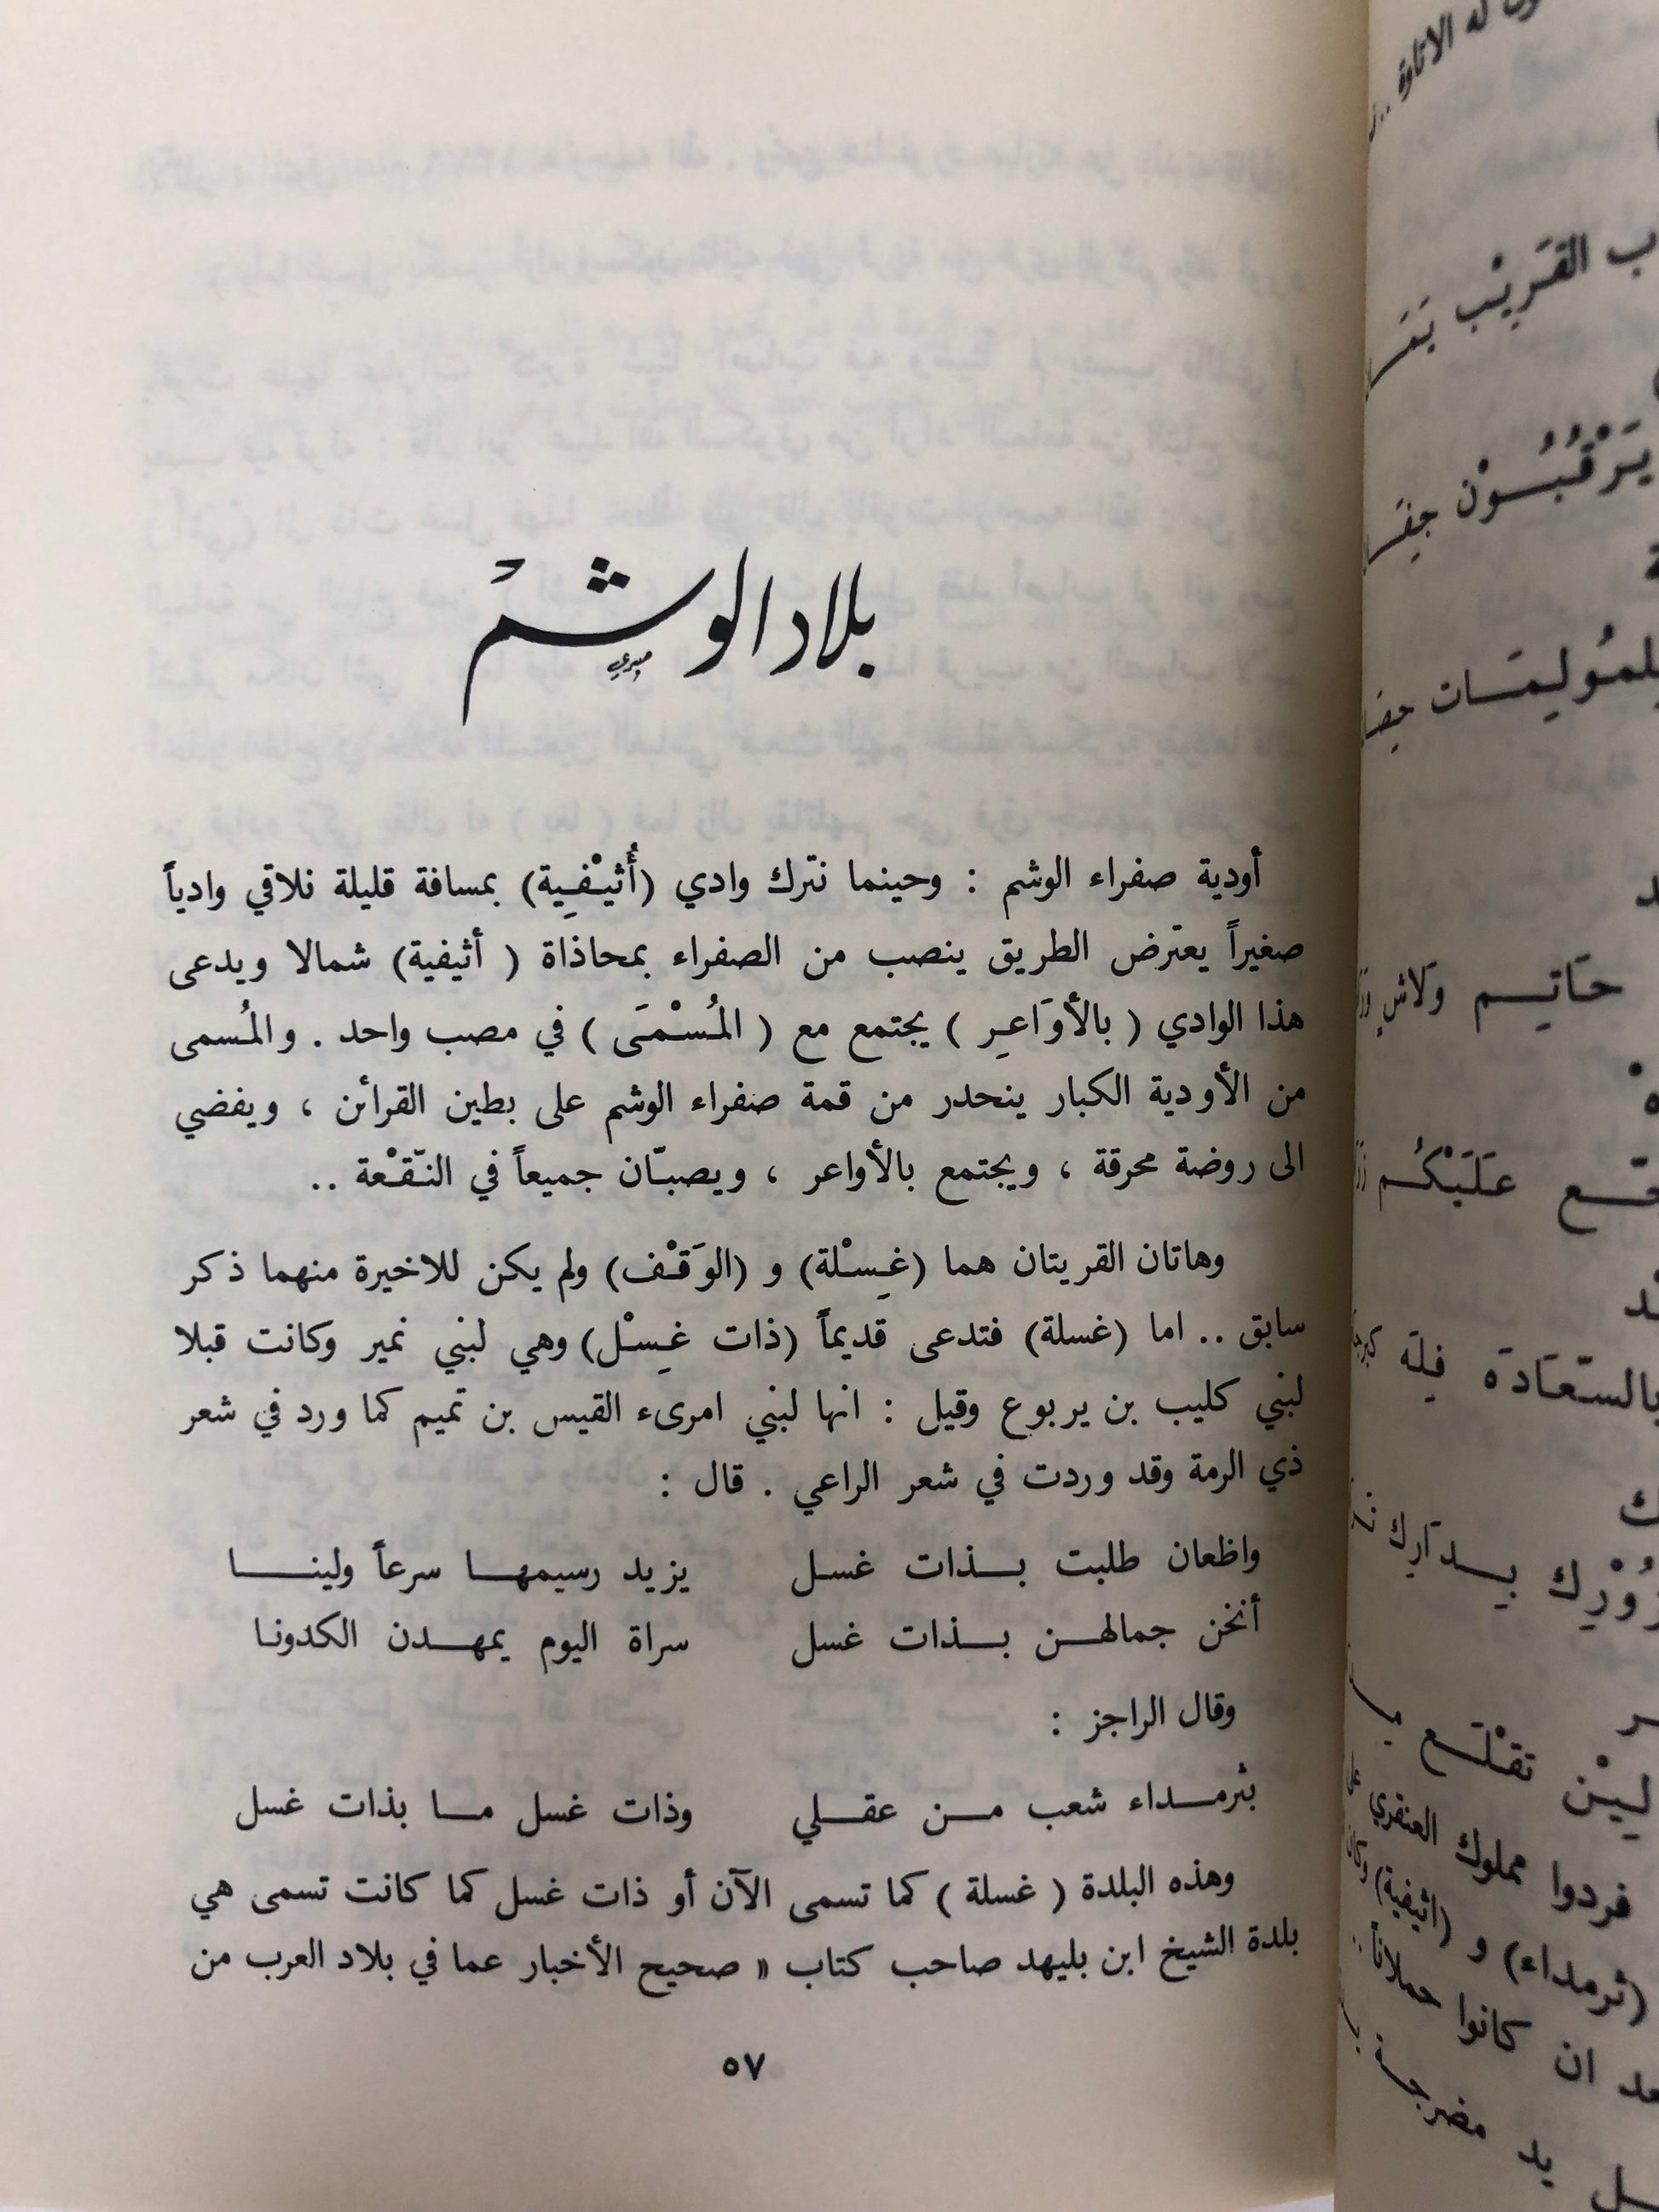 بلاد الوشم
أودية صفراء الوشم : وحينما نترك وادي (أُثيْفِية) بمسافة قليلة نلاقي وادياً
صغيراً يعترض الطريق ينصب من الصفراء بمحاذاة ( أثيفية) شمالا ويدعى
هذا الوادي ( بالأوَاعِر ) يجتمع مع ( المُسْمَى ) في مصب واحد . والمُسمى
من الأودية الكبار ينحدر من قمة صفراء الوشم على بطين القرائن ، ويفضي
الى روضة محرقة ، ويجتمع بالأواعر ، ويصبّان جميعاً في النّقْعة ..
وهاتان القريتان هما (غِسْلة) و (الوَقْف) ولم يكن للاخيرة منهما ذكر
سابق .. اما (غسلة) فتدعى قديماً (ذات غِسْل) وهي لبني نمير وكانت قبلا
لبني كليب بن يربوع وقيل : انها لبني امرىء القيس بن تميم كما ورد في شعر
ذي الرمة وقد وردت في شعر الراعي . قال :
واظعان طلبت بـذات غسل يزيد رسيمهـا سرعاً ولينـا
أنخن جمالهـن بـذات غسل سراة اليوم يمهـدن الكدونا
وقال الراجز :
بثرمـداء شعب مـن عقـلي وذات غسل مـا بذات غسل
وهذه البلدة ( غسلة ) كما تسمى الآن أو ذات غسل كما كانت تسمى هي
بلدة الشيخ ابن بليهد صاحب كتاب « صحيح الأخبار عما في بلاد العرب من
٥٧
له الاتاوة ..
القَرِيْب
يَرْقُبُـوْن
حَاتِـم وَلَاشٍ
عَلَيْكُـم
بالسّعَادَه
لَيْـن تقْلَـع
فردوا مملوك العنقري
(ثرمداء) و (اثيفية)
ان كانوا حملاناً
يد مضرجـة